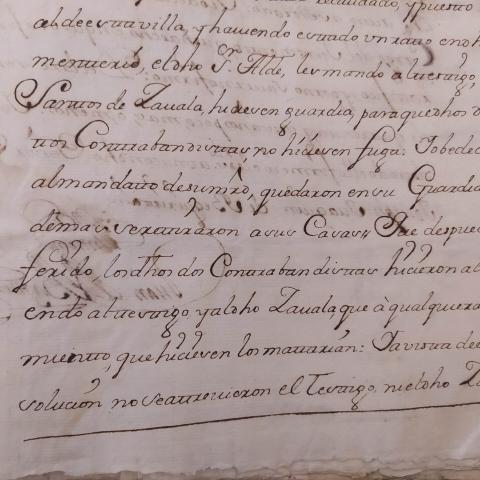 cuidado, y puesto
al de esta villa, y haviendo estado un rato en
menterio, el dho Sr. Alde, les mandó al testigo,
Santos de Zavala, hiciesen guardia, para que dhos
tros Contrabandistas, no hiciesen fuga: Iobede
al mandatto, de su mrd, quedaron en su Guardia
demas se retiraron a sus Casas; Que despue
ferido, los dhos dos Contrabandistas hicieron al
endo al testigo, y al dho Zavala que à qualquiera
miento, que hiciesen los mattarian: I a vista de
solución no se atrevieron el Testigo, ni el dho